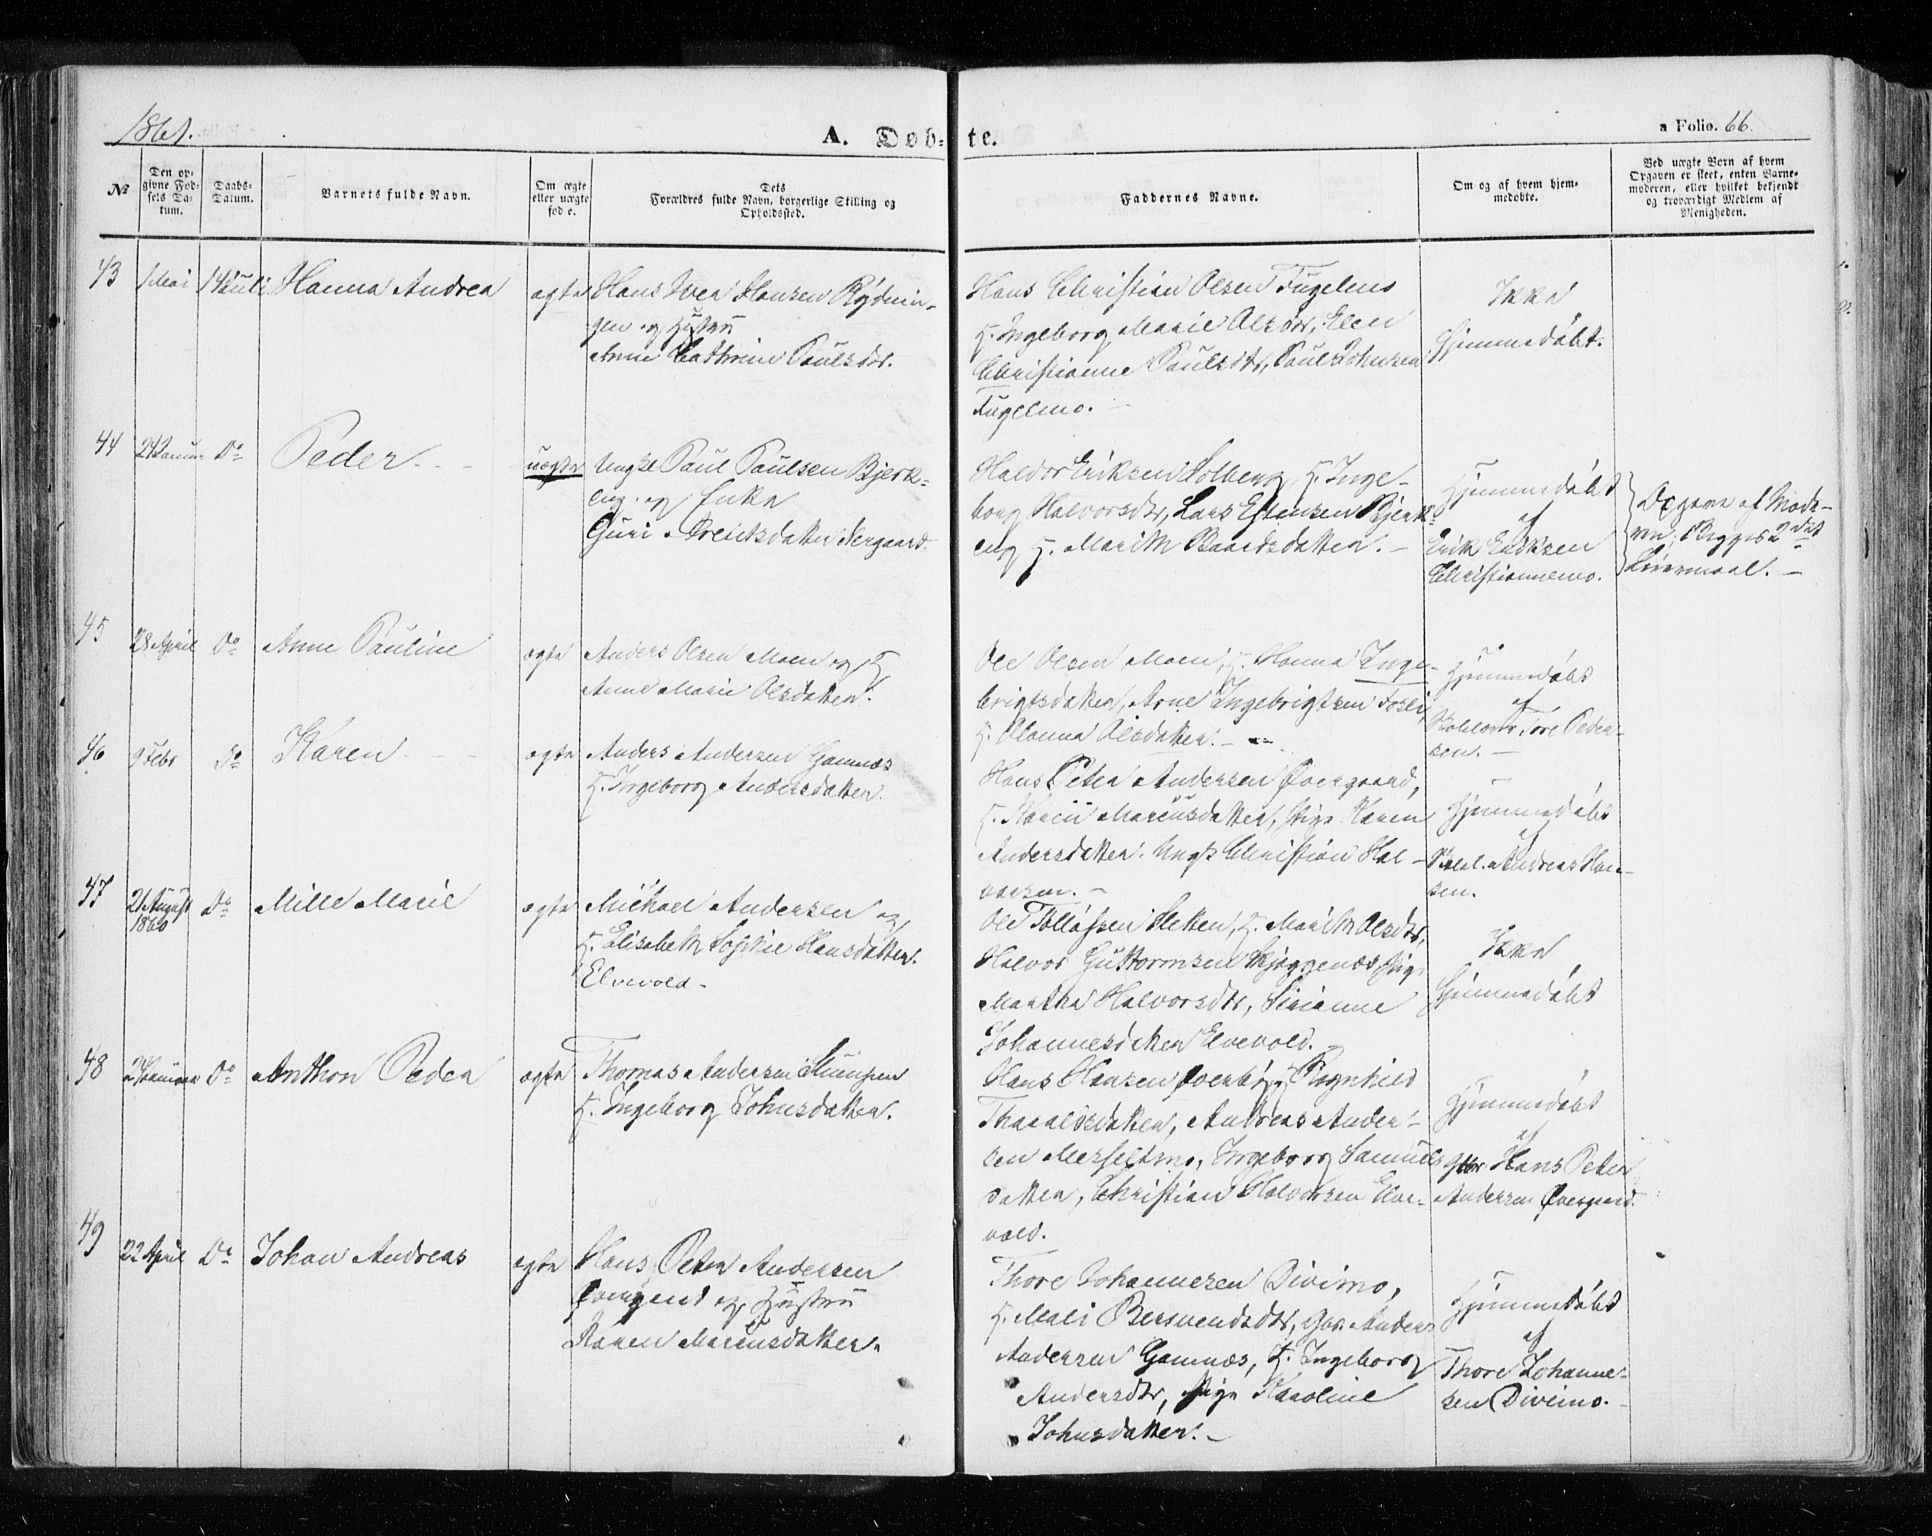 1861.
A. Døb-
te.
a Folio. 66.
No
Den op-
givne Fød-
sels Da-
tum.
Daabs-
Datum.
Barnets fulde Navn.
Om ægte
eller uægte
føde.
Dets
Forældres fulde Navn, borgerlige Stilling og
Opholdssted.
Faddernes Navne.
Om og af hvem hjem-
medøbte.
Ved uægte Børn af hvem
Opgaven er skeet, enten Barne-
moderen, eller hvilket bekjendt
og troværdigt Medlem af
Menigheden.
43
1 Mai
14 Juli
Hanna Andrea
ægte
Hans Hansen Rydnin-
gen og Hustru
Anne Cathrine Paulsdtr.
Hans Christian Olsen Fugelmo
H. Ingeborg Marie Olsdtr, Elen
Christianne Paulsdtr, Paul Johnsen
Fugelmo. —
Ikke
Hjemmedøbt.
44
24 Januar
Do
Peder - - -
uægte
Ungk. Paul Paulsen Bjerk-
eng og Enke
Guri Nergaard.
Haldor Eriksen Solberg, H. Inge-
borg Halvorsdtr, Lars Estensen Bjerk-
eng H. Marith Baardsdatter. —
Hjemmedøbt
af
Erik Eriksen
Christiannemo.
Opgave af Mode-
ren; Begges 2det
Leiermaal. —
45
28 April
Do
Anne Pauline
ægte
Anders Olsen Moen og H
Anne Marie Olsdatter.
Ole Olsen Moen, H. Hanna Inge-
brigtsdatter, Arne Ingebrigtsen Fosli,
H. Olsdatter. —
Hjemmedøbt
af
Tore Peder-
sen. —
46
9 Febr
Do
Karen - - -
ægte
Anders Andersen Gamnæs
H. Ingeborg Andersdatter.
Hans Peter Andersen Øvergaard,
H. Karen Marcusdatter, Pige Karen
Andersdatter. Ungk. Christian Hal-
vorsen. —
Hjemmedøbt
af
Andreas Han-
sen.
47
21 August
1860
Do
Mille Marie
ægte
Michael Andersen og
H. Elisabeth Sophie Hansdatter.
Elvevold -
Ole Tollefsen Sletten, H. Marith Olsdtr,
Halvor Guttormsen Skjeggenæs Pige
Martha Halvorsdtr, Sirianne
Johannesdatter Elvevold. —
Ikke
Hjemmedøbt
48
Januar
Do
Anthon Peder
ægte
Thomas Andersen
H. Ingeborg Johnsdatter.
Hans Hansen Øverbø, Ragnhild
Tharaldsdatter, Andreas Ander-
sen Ingeborg Samuels
datter, Christian Halvorsen Elve-
vold.
Hjemmedøbt
af
Hans Peter
Andersen Øvergaard.
49
22 April
Do
Johan Andreas
ægte
Hans Peter Andersen
Øvergaard og Hustru
Karen Marcusdatter.
Thore Johannesen Divimo,
H. Mali Bersvendsdtr, Gbr. Anders
Andersen Gamnæs, H. Ingeborg
Andersdtr, Pige Karoline
Johnsdatter. —
Hjemmedøbt
af
Thore Johanne-
sen Divimo. -